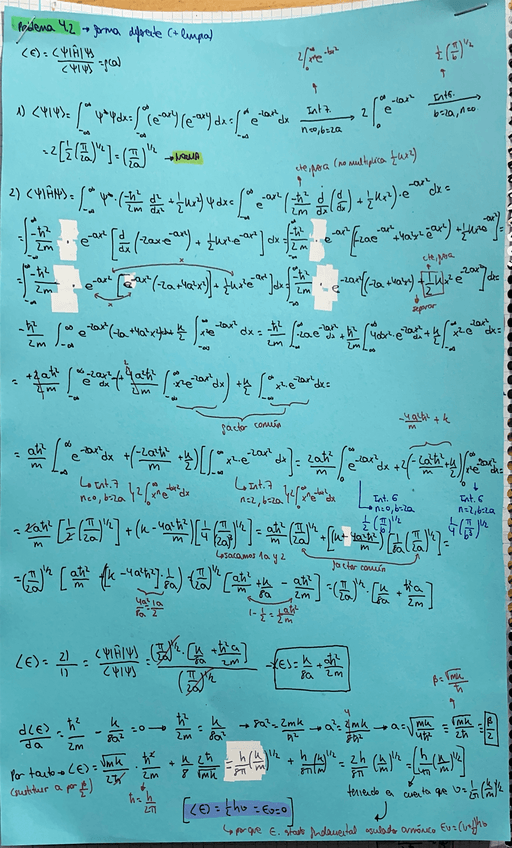 Problema 4.2 → forma diferente (+ limpia)
⟨E⟩ = ⟨Ψ|Ĥ|Ψ⟩ / ⟨Ψ|Ψ⟩ = f(a)
2∫₀^∞ xⁿe^(-bx²)   ½(π/b)^(1/2)
1) ⟨Ψ|Ψ⟩ = ∫_{-∞}^{∞} Ψ*Ψdx = ∫_{-∞}^{∞} (e^(-ax²))(e^(-ax²))dx = ∫_{-∞}^{∞} e^(-2ax²)dx → Int.7 n=0, b=2a → 2∫₀^∞ e^(-2ax²) → Int6. b=2a, n=0
= 2[½(π/2a)^(1/2)] = (π/2a)^(1/2) → NORMA
cte, para (no multiplica ½kx²)
2) ⟨Ψ|Ĥ|Ψ⟩ = ∫_{-∞}^{∞} Ψ*·(-ħ²/2m d²/dx² + ½kx²)Ψdx = ∫_{-∞}^{∞} e^(-ax²)(-ħ²/2m d/dx(d/dx) + ½kx²)·e^(-ax²)dx =
= ∫_{-∞}^{∞} -ħ²/2m · e^(-ax²)[d/dx(-2ax·e^(-ax²)) + ½kx²·e^(-ax²)]dx = ∫_{-∞}^{∞} -ħ²/2m · e^(-ax²)[(-2ae^(-ax²) + 4a²x²e^(-ax²)) + ½kx²e^(-ax²)] =
cte, para
= ∫_{-∞}^{∞} -ħ²/2m · e^(-ax²)[e^(-ax²)(-2a+4a²x²) + ½kx²e^(-ax²)]dx = ∫_{-∞}^{∞} -ħ²/2m · e^(-2ax²)[(-2a+4a²x²) + ½kx²e^(-2ax²)]dx =
separar
-ħ²/2m ∫_{-∞}^{∞} e^(-2ax²)(-2a+4a²x²)dx + k/2 ∫_{-∞}^{∞} x²e^(-2ax²)dx = -ħ²/2m ∫_{-∞}^{∞} -2ae^(-2ax²)dx + ħ²/2m ∫_{-∞}^{∞} 4a²x²·e^(-2ax²)dx + k/2 ∫_{-∞}^{∞} x²·e^(-2ax²)dx =
= +2aħ²/2m ∫_{-∞}^{∞} e^(-2ax²)dx - (4a²ħ²/2m ∫_{-∞}^{∞} x²e^(-2ax²)dx) + k/2 ∫_{-∞}^{∞} x²·e^(-2ax²)dx =
factor común
-4a²ħ²/m + k
= aħ²/m ∫_{-∞}^{∞} e^(-2ax²)dx + (-2a²ħ²/m + k/2)[∫_{-∞}^{∞} x²·e^(-2ax²)dx] = 2aħ²/m ∫₀^∞ e^(-2ax²)dx + 2(-2a²ħ²/m + k/2)∫₀^∞ x²e^(-2ax²)dx =
Int.7 n=0, b=2a 2∫₀^∞ xⁿe^(-bx²)dx   Int.7 n=2, b=2a 2∫₀^∞ xⁿe^(-bx²)dx   Int.6 n=0, b=2a ½(π/b)^(1/2)   Int.6 n=2, b=2a ¼(π/b³)^(1/2)
= 2aħ²/m [½(π/2a)^(1/2)] + (k - 4a²ħ²/m)[¼(π/(2a)³)^(1/2)] = aħ²/m (π/2a)^(1/2) + [k - 4a²ħ²/m](1/8a)(π/2a)^(1/2) =
sacamos 1a y 2   factor común
= (π/2a)^(1/2) [aħ²/m + [k - 4a²ħ²/m]·1/8a] = (π/2a)^(1/2) [aħ²/m + k/8a - aħ²/2m] = (π/2a)^(1/2) · [k/8a + ħ²a/2m]
4a²/8a = a/2   1 - ½ = ½ aħ²/2m
⟨E⟩ = 2)/1) = ⟨Ψ|Ĥ|Ψ⟩/⟨Ψ|Ψ⟩ = (π/2a)^(1/2)·[k/8a + ħ²a/2m] / (π/2a)^(1/2) → ⟨E⟩ = k/8a + aħ²/2m
β = √mk/ħ
d⟨E⟩/da = ħ²/2m - k/8a² = 0 → ħ²/2m = k/8a² → 8a² = 2mk/ħ² → a² = 2mk/8ħ² → a = √(mk/4ħ²) = √mk/2ħ = β/2
Por tanto → ⟨E⟩ = √mk/2ħ · ħ²/2m + k/8 · 2ħ/√mk = h/8π (k/m)^(1/2) + h/8π (k/m)^(1/2) = 2h/8π (k/m)^(1/2) = [h/4π (k/m)^(1/2)]
(sustituir a por β/2)   ħ = h/2π   teniendo en cuenta que ν = 1/2π (k/m)^(1/2)
⟨E⟩ = ½hν = Eν=0
→ porque E. estado fundamental oscilador armónico Eν = (ν+½)hν